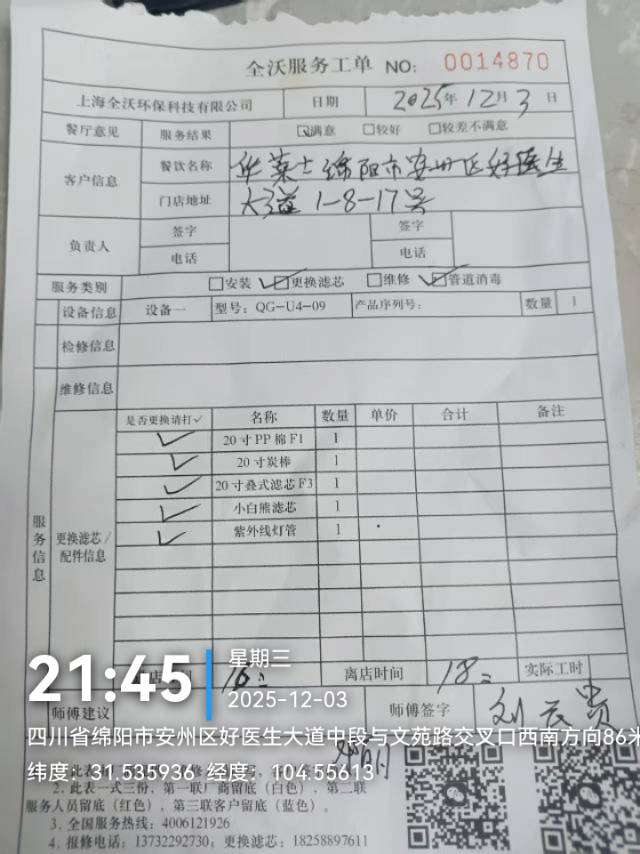 全沃服务工单 NO: 0014870
上海全沃环保科技有限公司 日期 2025年12月3日
餐厅意见 服务结果 ☑满意 □较好 □较差不满意
客户信息 餐饮名称 华莱士绵阳市安州区好医生
门店地址 大道1-8-17号
负责人 签字 签字
电话 电话
服务类别 □安装 ☑更换滤芯 □维修 ☑管道消毒
设备信息 设备一 型号: QG-U4-09 产品序列号: 数量 1
检修信息
维修信息
服务信息
更换滤芯/配件信息
是否更换请打✓ 名称 数量 单价 合计 备注
✓ 20寸PP棉F1 1
✓ 20寸炭棒 1
✓ 20寸叠式滤芯F3 1
✓ 小白熊滤芯 1
✓ 紫外线灯管 1
店 16: 离店时间 18: 实际工时
师傅建议 师傅签字 刘云贵
21:45
星期三
2025-12-03
四川省绵阳市安州区好医生大道中段与文苑路交叉口西南方向86米
纬度: 31.535936 经度: 104.55613
2. 此表一式三份，第一联厂商留底（白色）、第二联
服务人员留底（红色）、第三联客户留底（蓝色）。
3. 全国服务热线: 4006121926
4. 报修电话: 13732292730; 更换滤芯: 18258897611